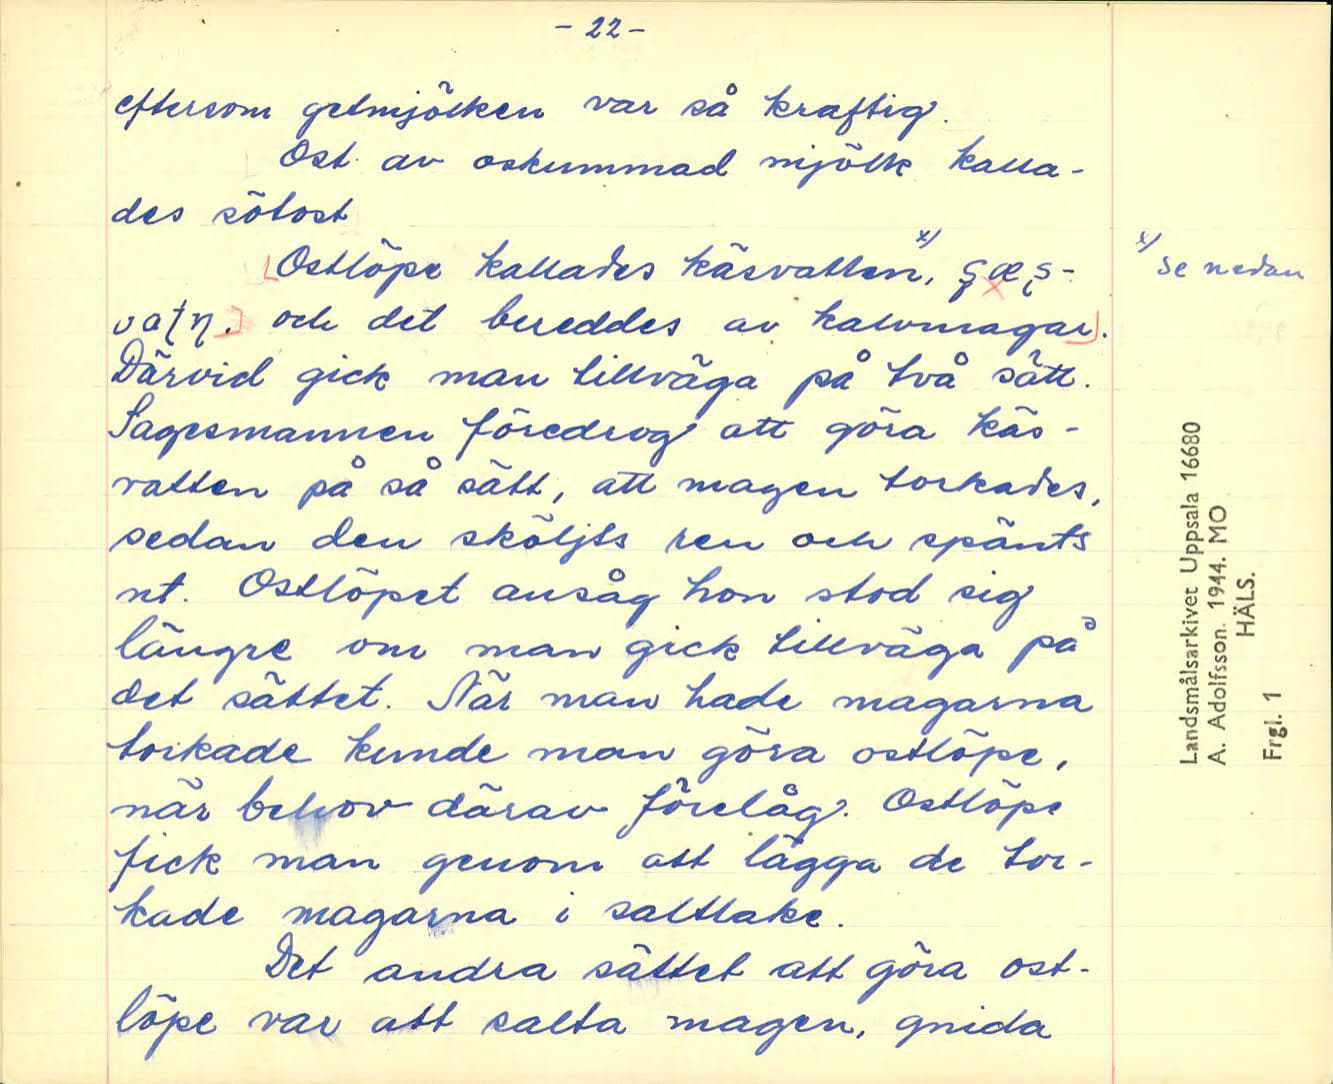 - 22 -
eftersom getmjölken var så kraftig.
Ost av oskummad mjölk kalla-
des sötost
[Ostlöpe kallades käsvatten, x)
x) se nedan
och det bereddes av kalvmagar].
Därvid gick man tillväga på två sätt.
Sagesmannen föredrog att göra käs-
vatten på så sätt, att magen torkades,
sedan den sköljts ren och spänts
ut. Ostlöpet ansåg hon stod sig
längre om man gick tillväga på
det sättet. När man hade magarna
torkade kunde man göra ostlöpe,
när behov därav förelåg. Ostlöpe
fick man genom att lägga de tor-
kade magarna i saltlake.
Det andra sättet att göra ost-
löpe var att salta magen, gnida
Landsmålsarkivet Uppsala 16680
A. Adolfsson. 1944. MO
HÄLS.
Frgl. 1